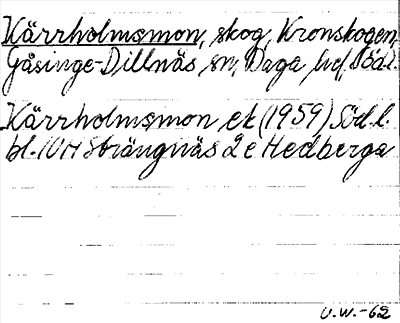 Kärrholmsmon, skog, Kronskogen,
Gåsinge-Dillnäs sn, Daga hd, Södl.
Kärrholmsmon ek (1959) Söd.l.
bl. 10H Strängnäs 2 e Hedberga
U.W.-62